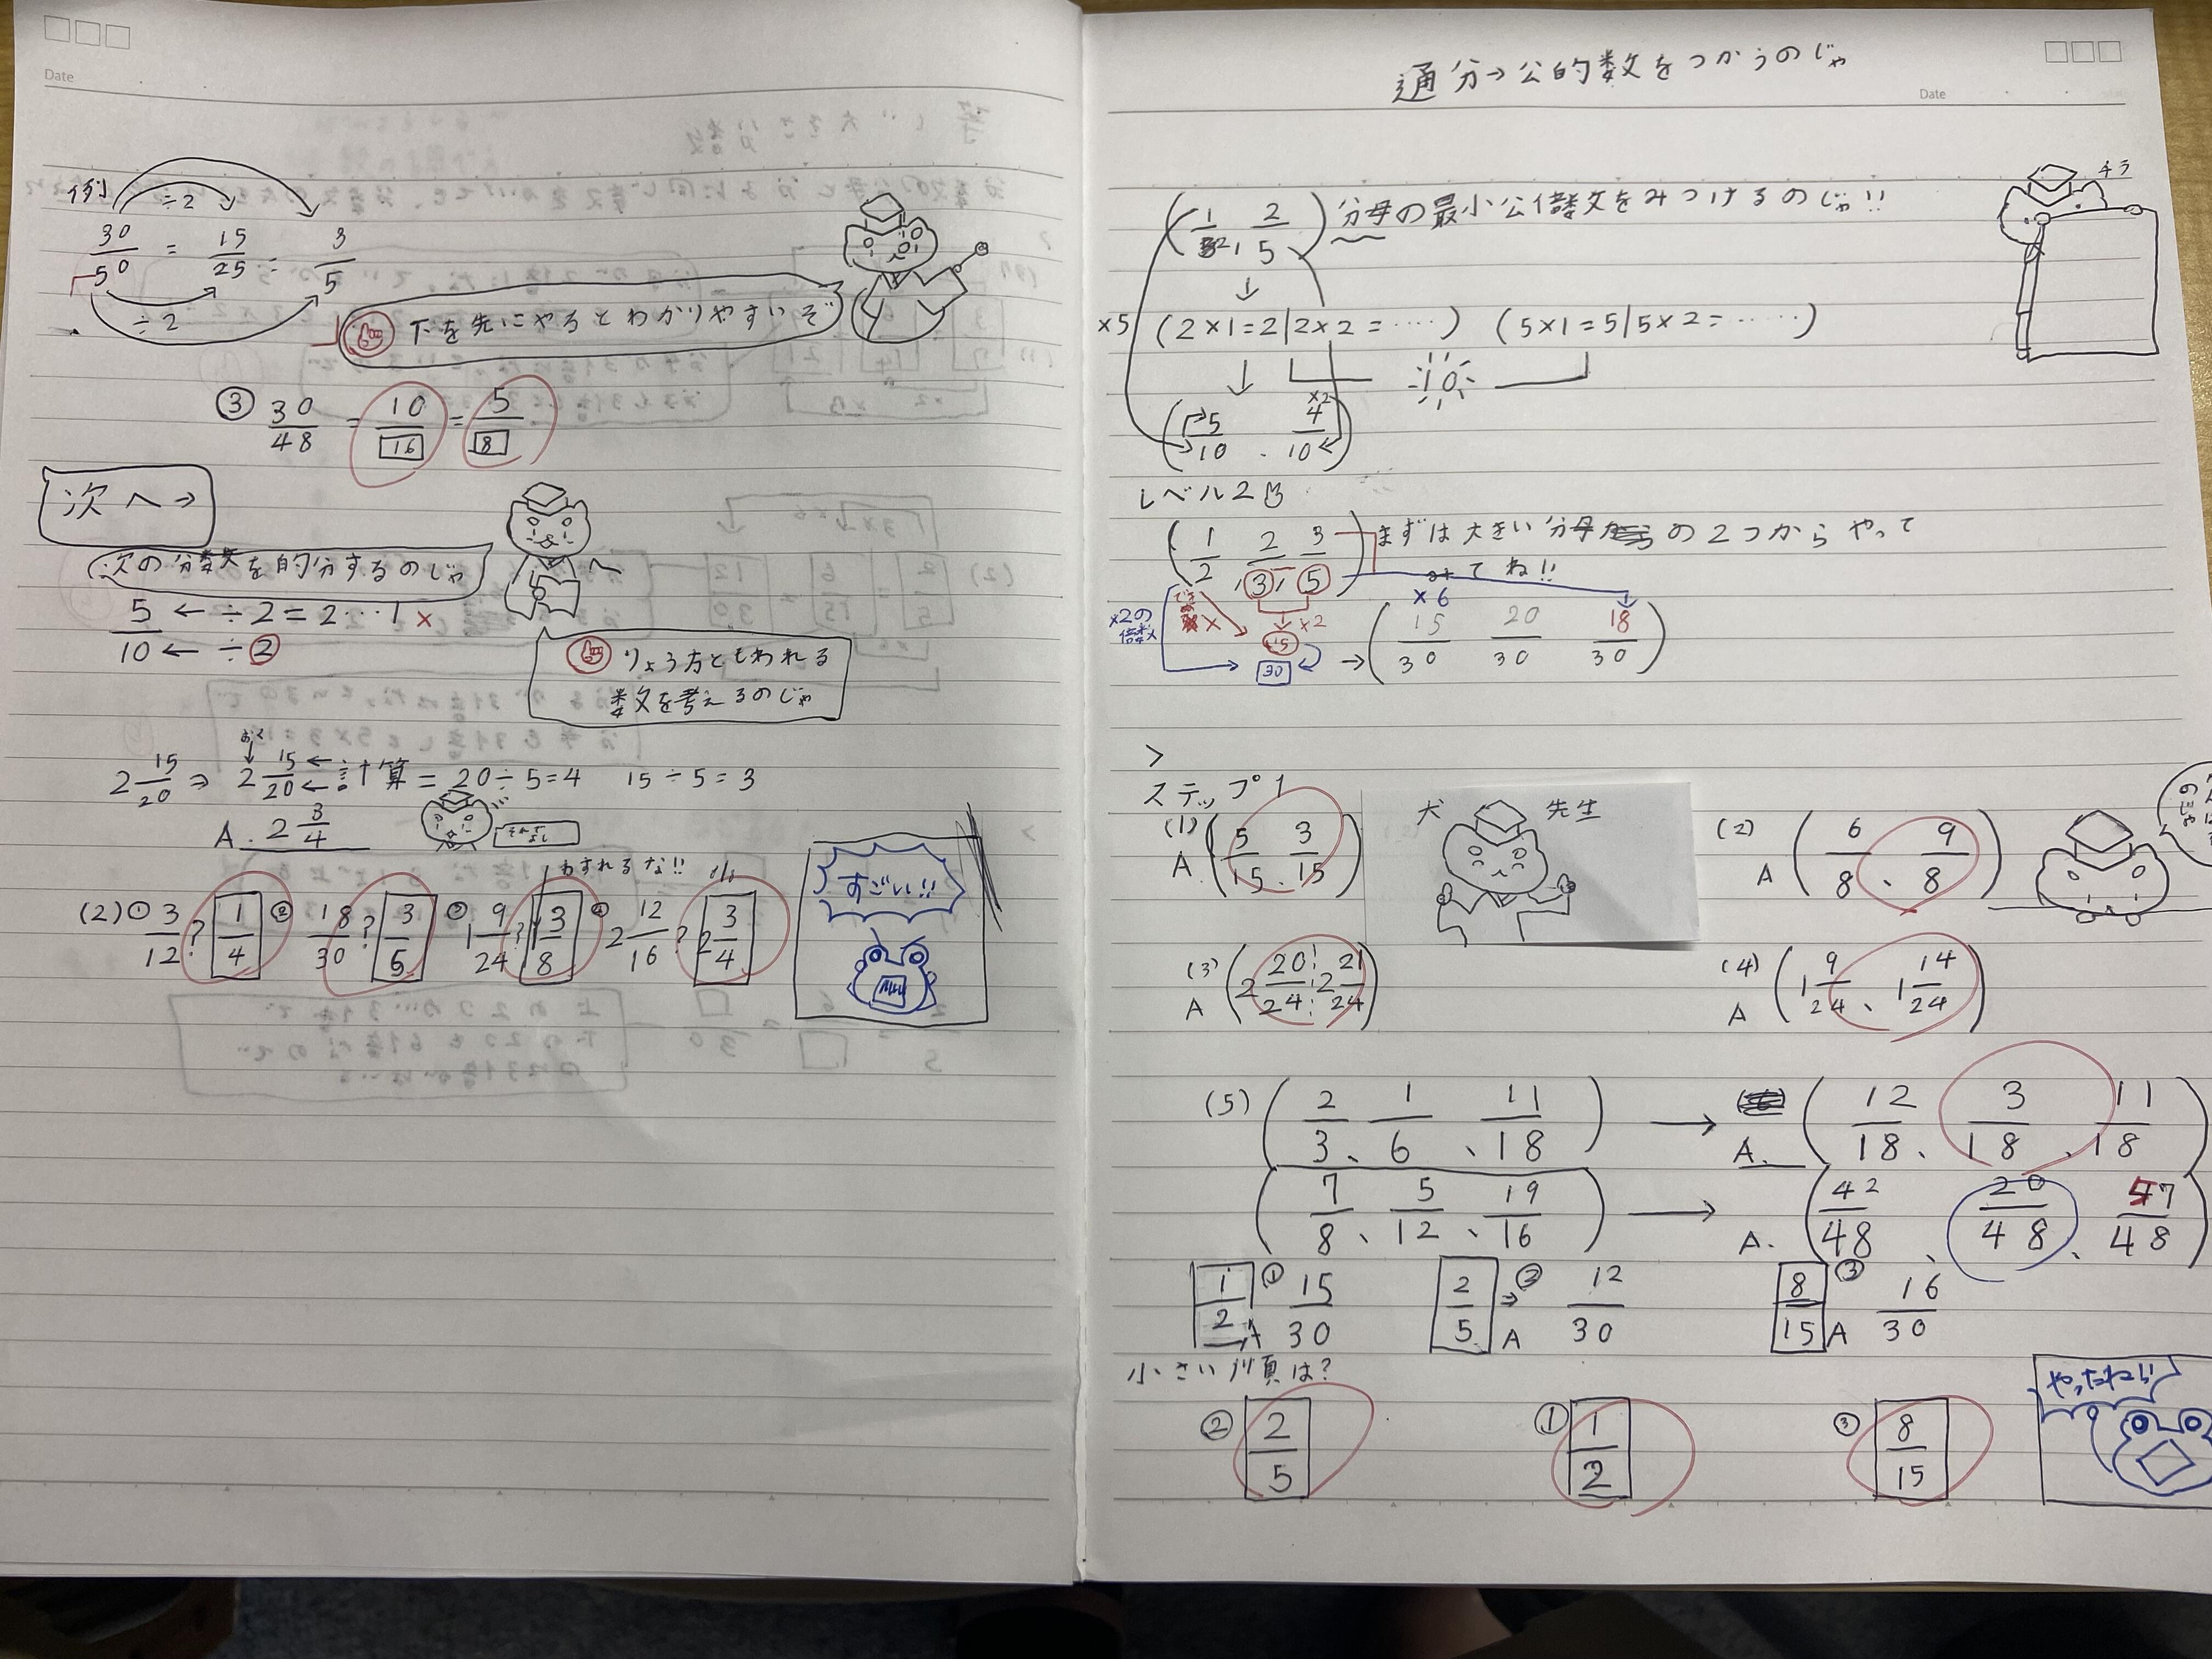 Date
例
÷2
30/50 = 15/25 = 3/5
÷2
下を先にやるとわかりやすいぞ
③ 30/48 = 10/16 = 5/8
次へ→
次の分数を的分するのじゃ
5 ← ÷2=2…1 ×
10 ← ÷2
りょう方ともわれる
数を考えるのじゃ
おく
2 15/20 ⇒ 2 15/20 ← 計算 = 20÷5=4 15÷5=3
A. 2 3/4
わすれるな!!
(2) ① 3/12 ? 1/4 ② 18/30 ? 3/5 ③ 1 9/24 ? 1 3/8 ④ 2 12/16 ? 2 3/4
すごい!!
通分→公的数をつかうのじゃ
Date
チラ
(1/2, 2/5) 分母の最小公倍数をみつけるのじゃ!!
↓
×5 (2×1=2|2×2=……) (5×1=5|5×2=……)
↓ 10
×2
(5/10 . 4/10)
レベル2
(1/2, 2/3, 3/5) まずは大きい分母の2つからやって
てね!!
×6
×2の
倍数
× ×2
15
30 → (15/30 20/30 18/30)
>
ステップ1
(1)
A. (5/15 . 3/15)
犬 先生
(2)
A (6/8 、 9/8)
(3)
A (2 20/24 2 21/24)
(4)
A (1 9/24 、 1 14/24)
(5) (2/3 、 1/6 、 11/18) → A. (12/18 、 3/18 、 11/18)
(7/8 、 5/12 、 19/16) → A. (42/48 、 20/48 、 57/48)
1/2 ① A 15/30 2/5 ⇒ ② A 12/30 8/15 ③ A 16/30
小さい順は?
② 2/5 ① 1/2 ③ 8/15
やったね!!